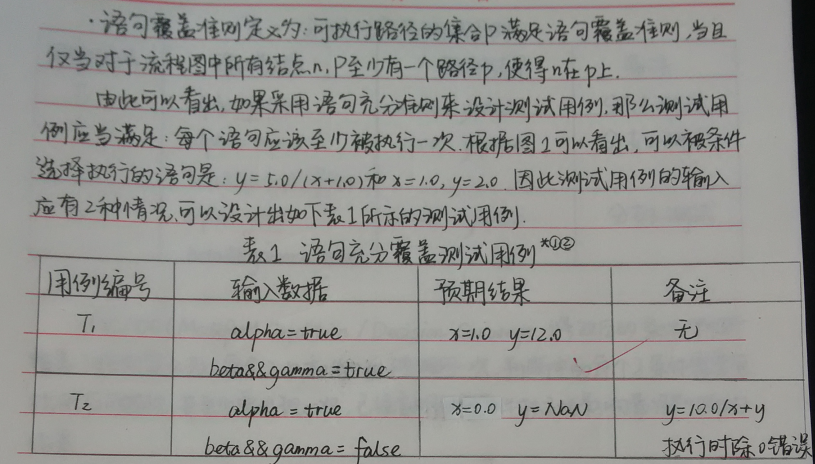 ·语句覆盖准则定义为:可执行路径的集合P满足语句覆盖准则,当且
仅当对于流程图中所有结点n,P至少有一个路径p,使得n在p上.
由此可以看出,如果采用语句充分准则来设计测试用例,那么测试用
例应当满足:每个语句应该至少被执行一次.根据图1可以看出,可以被条件
选择执行的语句是:y=5.0/(x+1.0)和x=1.0,y=2.0 因此测试用例的输入
应有2种情况,可以设计出如下表1所示的测试用例.
表1 语句充分覆盖测试用例*①②
用例编号 输入数据 预期结果 备注
T1 alpha=true x=1.0 y=12.0 无
beta&&gamma=true
T2 alpha=true x=0.0 y=NaN y=10.0/x+y
beta&&gamma=false 执行时除0错误